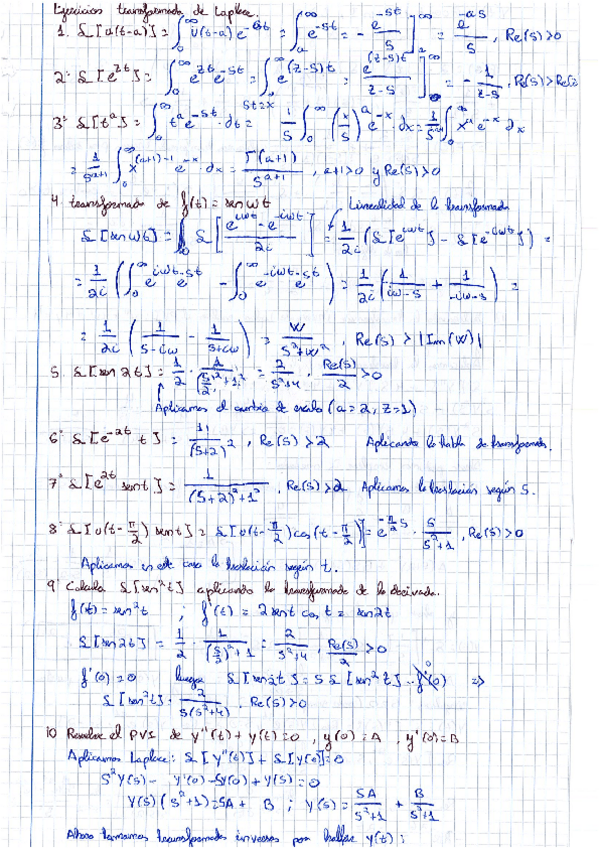 Ejercicios transformada de Laplace.
1. L[u(t-a)] = ∫₀^∞ U(t-a) e^{-st} = ∫ₐ^∞ e^{-st} = -e^{-st}/s ]ₐ^∞ = e^{-as}/s , Re(s)>0
2: L[e^{zt}] = ∫₀^∞ e^{zt} e^{-st} = ∫₀^∞ e^{(z-s)t} = e^{(z-s)t}/(z-s) ]₀^∞ = -1/(z-s) , Re(s)>Re(z)
st=x
3: L[t^a] = ∫₀^∞ t^a e^{-st} · dt = 1/s ∫₀^∞ (x/s)^a e^{-x} · dx = 1/s^{a+1} ∫₀^∞ x^a e^{-x} dx
= 1/s^{a+1} ∫₀^∞ x^{(a+1)-1} e^{-x} · dx = Γ(a+1)/s^{a+1} , a+1>0 y Re(s)>0
4 transformada de f(t) = sen wt Linealidad de la transformada
L[sen wt] = L[(e^{iwt} - e^{-iwt})/2i] = 1/2i (L[e^{iwt}] - L[e^{-iwt}]) =
= 1/2i (∫₀^∞ e^{iwt-st} - ∫₀^∞ e^{-iwt-st}) = 1/2i (1/(iw-s) + 1/(-iw-s)) =
= 1/2i (1/(s-iw) - 1/(s+iw)) = w/(s²+w²) , Re(s) > |Im(w)|
5. L[sen 2t] = 1/2 · 1/((s/2)²+1²) = 2/(s²+4) , Re(s)/2 >0
Aplicamos el cambio de escala (a=2, z=1)
6: L[e^{-2t} t] = 1!/(s+2)² , Re(s)>2 Aplicando la tabla de transformadas.
7: L[e^{2t} sent] = 1/((s+2)²+1²) , Re(s)>2 Aplicamos la traslación según s.
8: L[u(t-π/2) sent] = L[u(t-π/2)cos(t-π/2)] = e^{-π/2 s} · s/(s²+1) , Re(s)>0
Aplicamos en este caso la traslación según t.
9: Calcula L[sen²t] aplicando la transformada de la derivada.
f(t) = sen²t ; f'(t) = 2 sent cos t = sen2t
L[sen 2t] = 1/2 · 1/((s/2)²+1) = 2/(s²+4) , Re(s)/2 >0
f'(0)=0 luego L[sen2t] = S L[sen²t] - f(0) ⇒
L[sen²t] = 2/(s(s²+4)) , Re(s)>0
10 Resolver el PVI de y''(t)+y(t)=0 , y(0)=A , y'(0)=B
Aplicamos Laplace: L[y''(t)] + L[y(0)]=0
S²Y(s) - y'(0) - Sy(0) + Y(s) = 0
Y(s)(s²+1) = SA + B ; Y(s) = SA/(s²+1) + B/(s²+1)
Ahora tomamos transformadas inversas para hallar y(t):